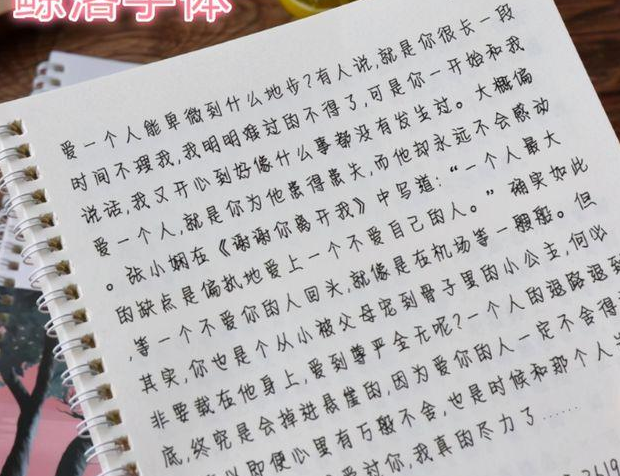 鲸落字体
爱一个人能卑微到什么地步?有人说,就是你很长一段
时间不理我,我明明难过的不得了,可是你一开始和我
说话,我又开心到好像什么事都没有发生过。大概偏
爱一个人,就是你为他患得患失,而他却永远不会感动
。张小娴在《谢谢你离开我》中写道:“一个人最大
的缺点是偏执地爱上一个不爱自己的人。”确实如此
,等一个不爱你的人回头,就像是在机场等一艘船。但
其实,你也是个从小被父母宠到骨子里的小公主,何必
非要栽在他身上,爱到尊严全无呢?一个人的退路退到
底,终究是会掉进悬崖的,因为爱你的人一定不舍得
即便心里有万般不舍,也是时候和那个人
爱过你,我真的尽力了……